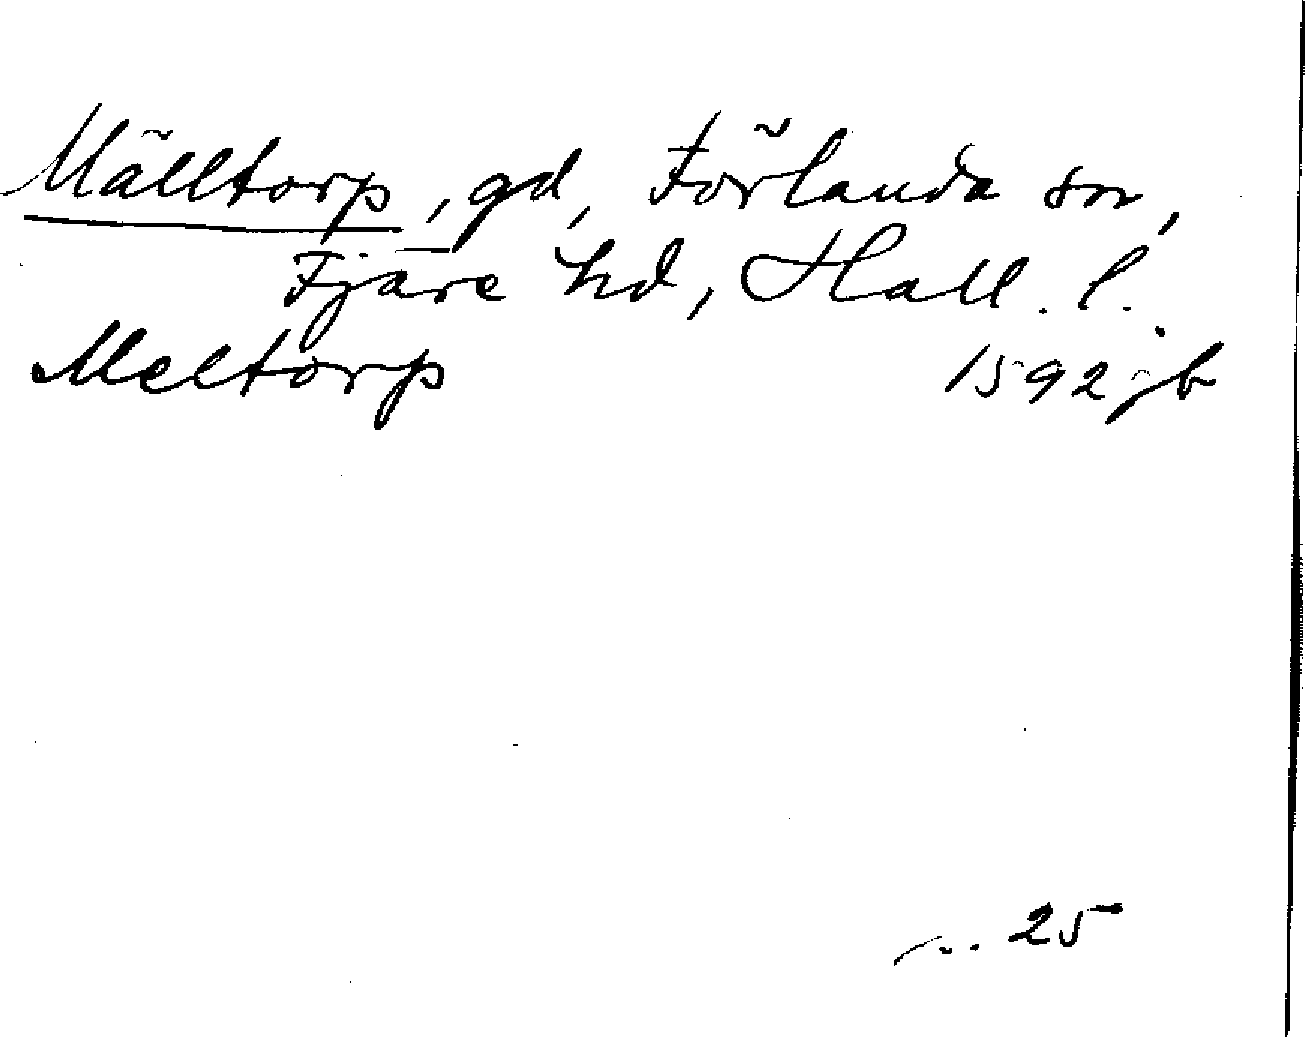 Mälltorp, gd, Förlanda sn,
Fjäre hd, Hall. l.
Meltorp 1592 jb
25